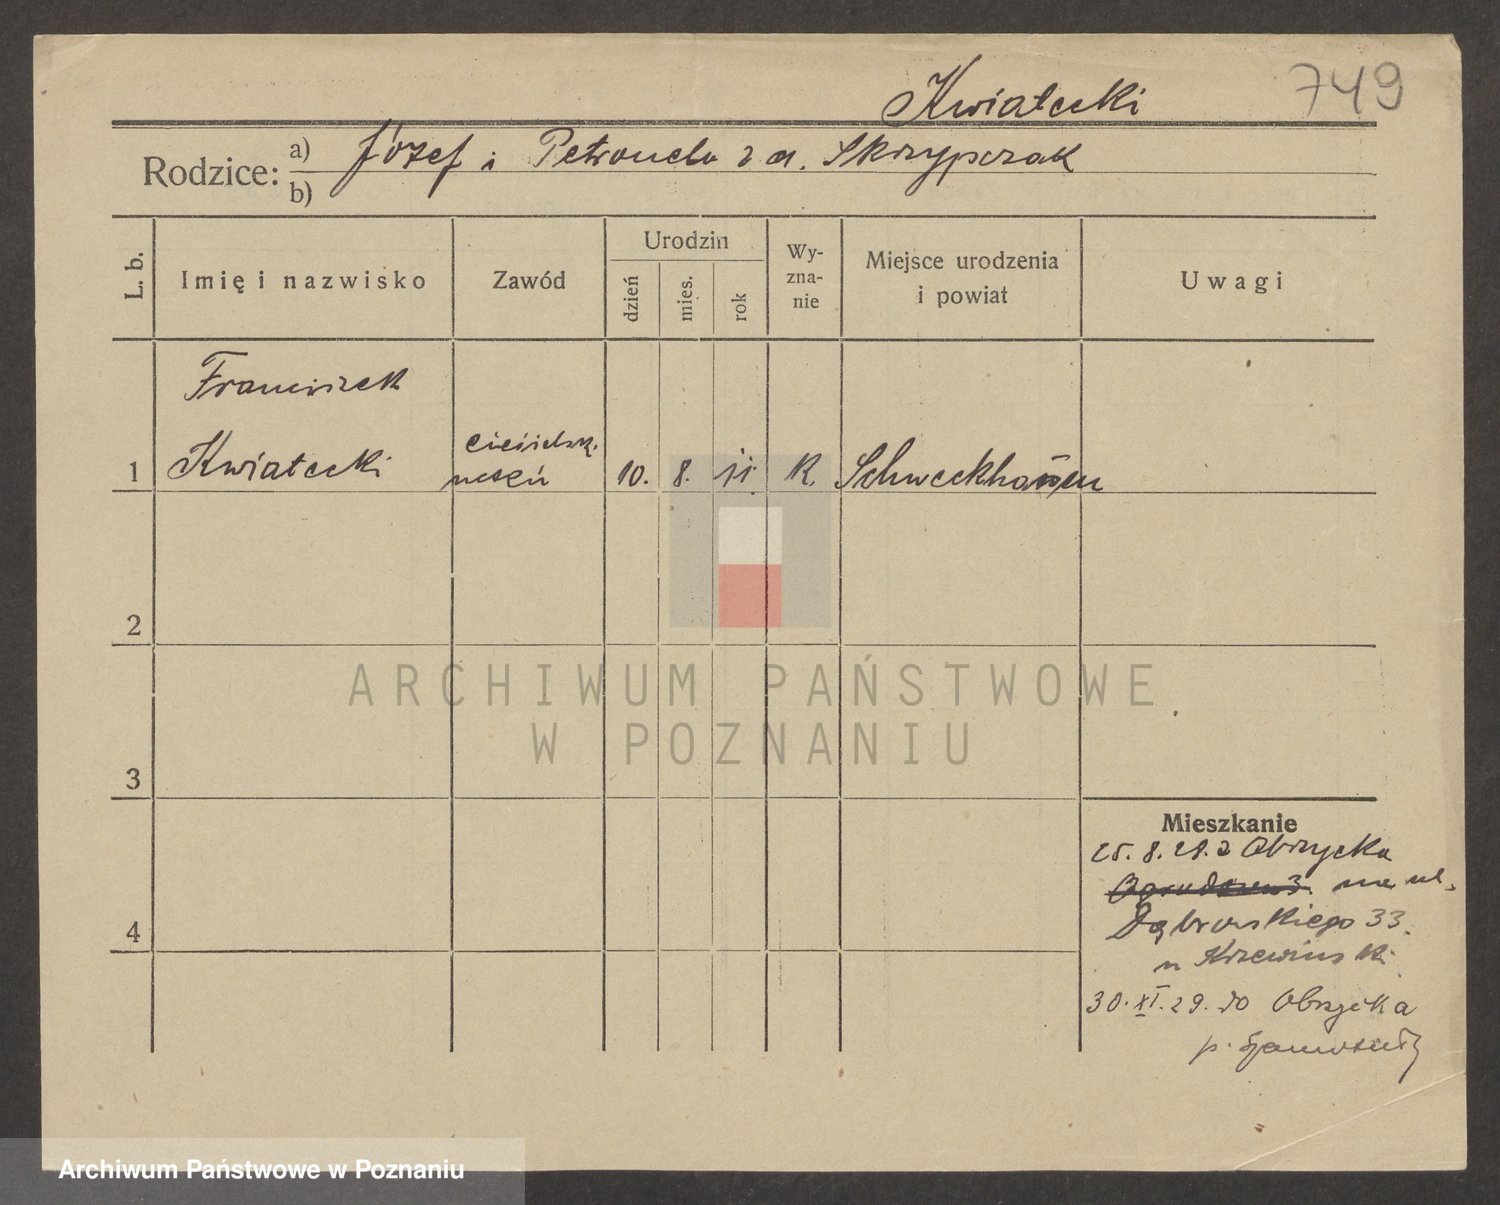 749
Kwiatecki
Rodzice: a) Józef i Petronela z d. Skrzypczak
b)
L. b.
Imię i nazwisko
Zawód
Urodzin
dzień
mies.
rok
Wy-
zna-
nie
Miejsce urodzenia
i powiat
Uwagi
Franciszek
1 Kwiatecki
ciesielsk.
uczeń
10. 8. 11. K. Schweckhausen
2
3
4
Mieszkanie
25. 8. 28. z Obrzycka
na ul.
Dąbrowskiego 33.
u Krzewiński
30. XI. 29. do Obrzycka
p. Szamotuły
ARCHIWUM PAŃSTWOWE
W POZNANIU
Archiwum Państwowe w Poznaniu